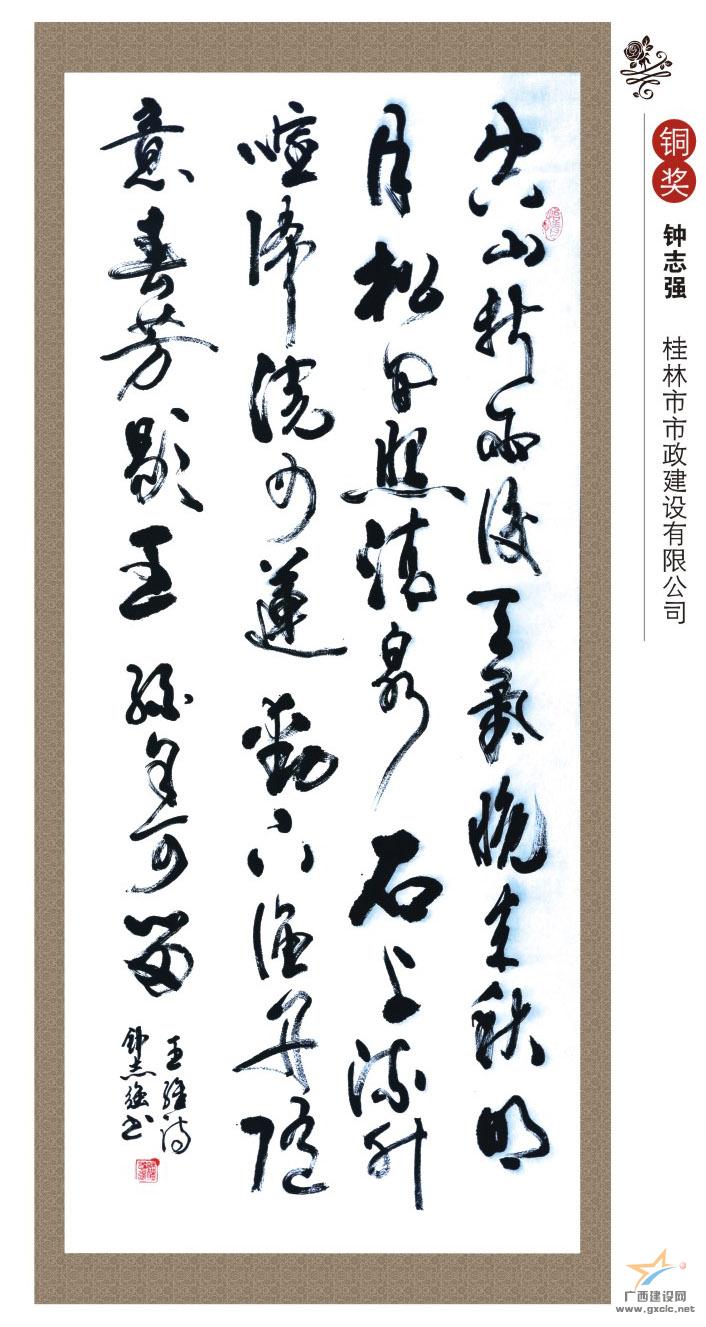 铜奖
钟志强
桂林市市政建设有限公司
空山新雨後天氣晚来秋明
月松间照清泉石上流竹
喧歸浣女蓮動下漁舟隨
意春芳歇王孫自可留
王维诗
钟志强书
广西建设网
www.gxcic.net